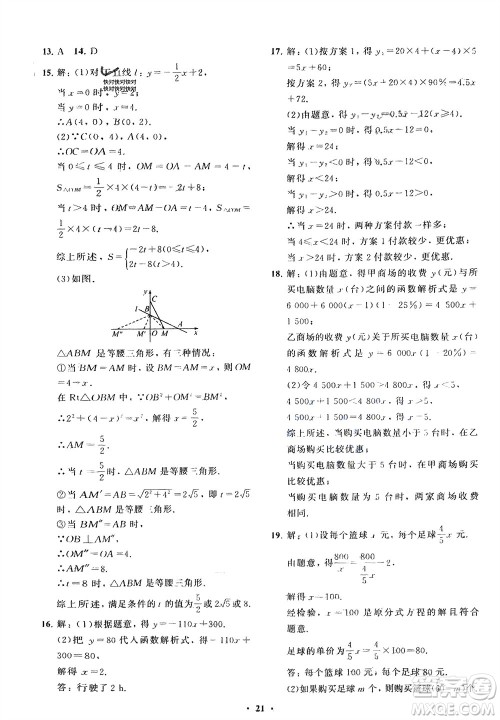 13. A 14. D
15. 解:(1)对于直线 l:y=-1/2x+2,
当 x=0 时,y=2,
当 y=0 时,x=4.
∴A(4,0).
(2)∵C(0,4),A(4,0),
∴OC=OA=4.
当 0≤t≤4 时,OM=OA-AM=4-t,
S△OCM=1/2×4×(4-t)=8-2t;
当 t>4 时,OM=AM-OA=t-4,S△OCM=
1/2×4×(t-4)=2t-8.
综上所述,S={-2t+8(0≤t≤4)
2t-8(t>4).
(3)如图.
△ABM 是等腰三角形,有三种情况:
①当 BM=AM 时,设 BM=AM=x,则 OM
=4-x.
在 Rt△OBM 中,∵OB²+OM²=BM²,
∴2²+(4-x)²=x².解得 x=5/2.
∴AM=5/2.
∴当 t=5/2 时,△ABM 是等腰三角形.
②当 AM′=AB=√(2²+4²)=2√5,
即 t=2√5 时,△ABM 是等腰三角形.
③当 BM″=BA 时,
∵OB⊥AM″,
∴OM″=OA=4.
∴AM″=8.
∴t=8 时,△ABM 是等腰三角形.
综上所述,满足条件的 t 的值为 5/2 或 2√5 或 8.
16. 解:(1)根据题意,得 y=-110x+300.
(2)将 y=80 代入函数解析式 y=-110x+300,
得 80=-110x+300.
解得 x=2.
答:行驶了 2 h.
17. 解:(1)按方案 1,得 y₁=20×4+(x-4)×
5=5x+60;
按方案 2,得 y₂=(5x+20×4)×0.9=4.5x
+72.
(2)由题意,得 y₁-y₂=0.5x-12(x≥4).
当 y₁-y₂=0 时,0.5x-12=0,解得 x=24;
当 y₁-y₂<0 时,0.5x-12<0,解得 x<24;
当 y₁-y₂>0 时,0.5x-12>0,解得 x>24.
答:当 x=24 时,两种方案付款一样多;
当 4≤x<24 时,方案 1 付款较少,更优惠;
当 x>24 时,方案 2 付款较少,更优惠.
18. 解:(1)由题意,得甲商场的收费 y(元)与所
买电脑台数 x(台)之间的函数解析式是 y=
6 000+6 000×(1-25%)(x-1)=4 500x+
1 500;
乙商场的收费 y(元)关于所买电脑台数 x(台)
的函数解析式是 y=6 000x(1-20%)=
4 800x.
(2)令 4 500x+1 500=4 800x,解得 x=5;
4 500x+1 500>4 800x,解得 x<5;
4 500x+1 500<4 800x,解得 x>5.
综上所述,当购买电脑台数小于 5 台时,在乙
商场购买比较优惠;
当购买电脑台数大于 5 台时,在甲商场购买
比较优惠;
当购买电脑 5 台时,两家商场收费相同.
19. 解:(1)设每个篮球 x 元,每个足球 4/5x 元,
由题意,得
解得 x=100.
经检验,x=100 是原分式方程的解且符合
题意.
足球的单价为 4/5×100=80(元).
答:
(2)设购买足球 m 个,
21